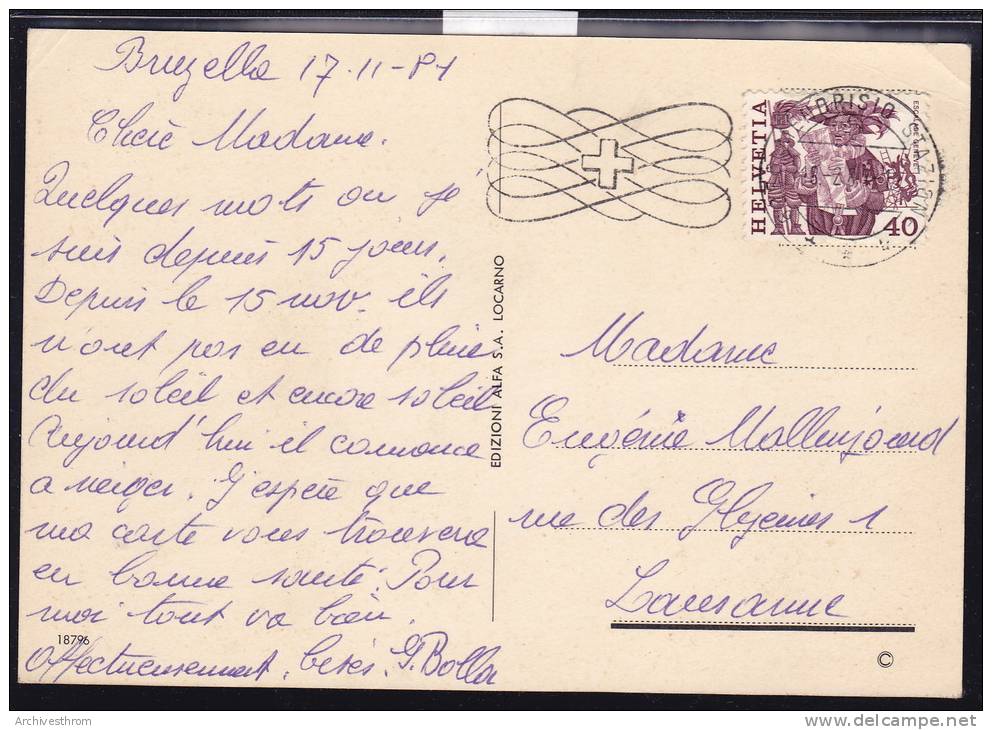 Bruzella 17-11-81
Chère Madame.
Quelques mots ou je
suis depuis 15 jours.
Depuis le 15 nov. ils
n'ont pas eu de pluie
du soleil et encore soleil
Aujourd'hui il comance
a neiger. J'espère que
ma carte vous trouvera
en bonne santé. Pour
moi tout va bien.
Affectueusement. G. Bolla
18796
EDIZIONI ALFA S.A. LOCARNO
HELVETIA
40
STAZION
Madame
Eugénie
rue des 1
Lausanne
©
Archivesthrom
http://www.delcampe.net